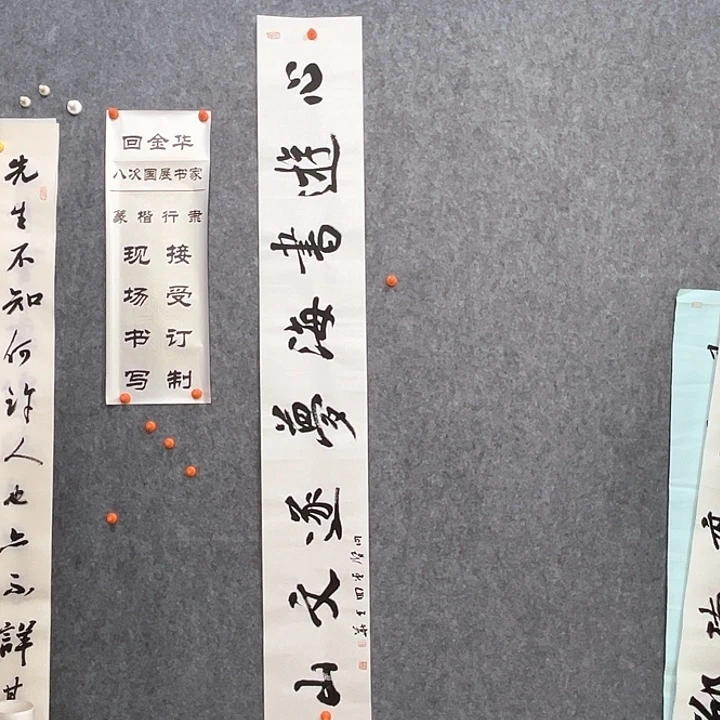 先生不知何許人也亦不詳其
回金华
八次国展书家
篆楷行隶
现场书写
接受订制
心遊書海夢遂文山